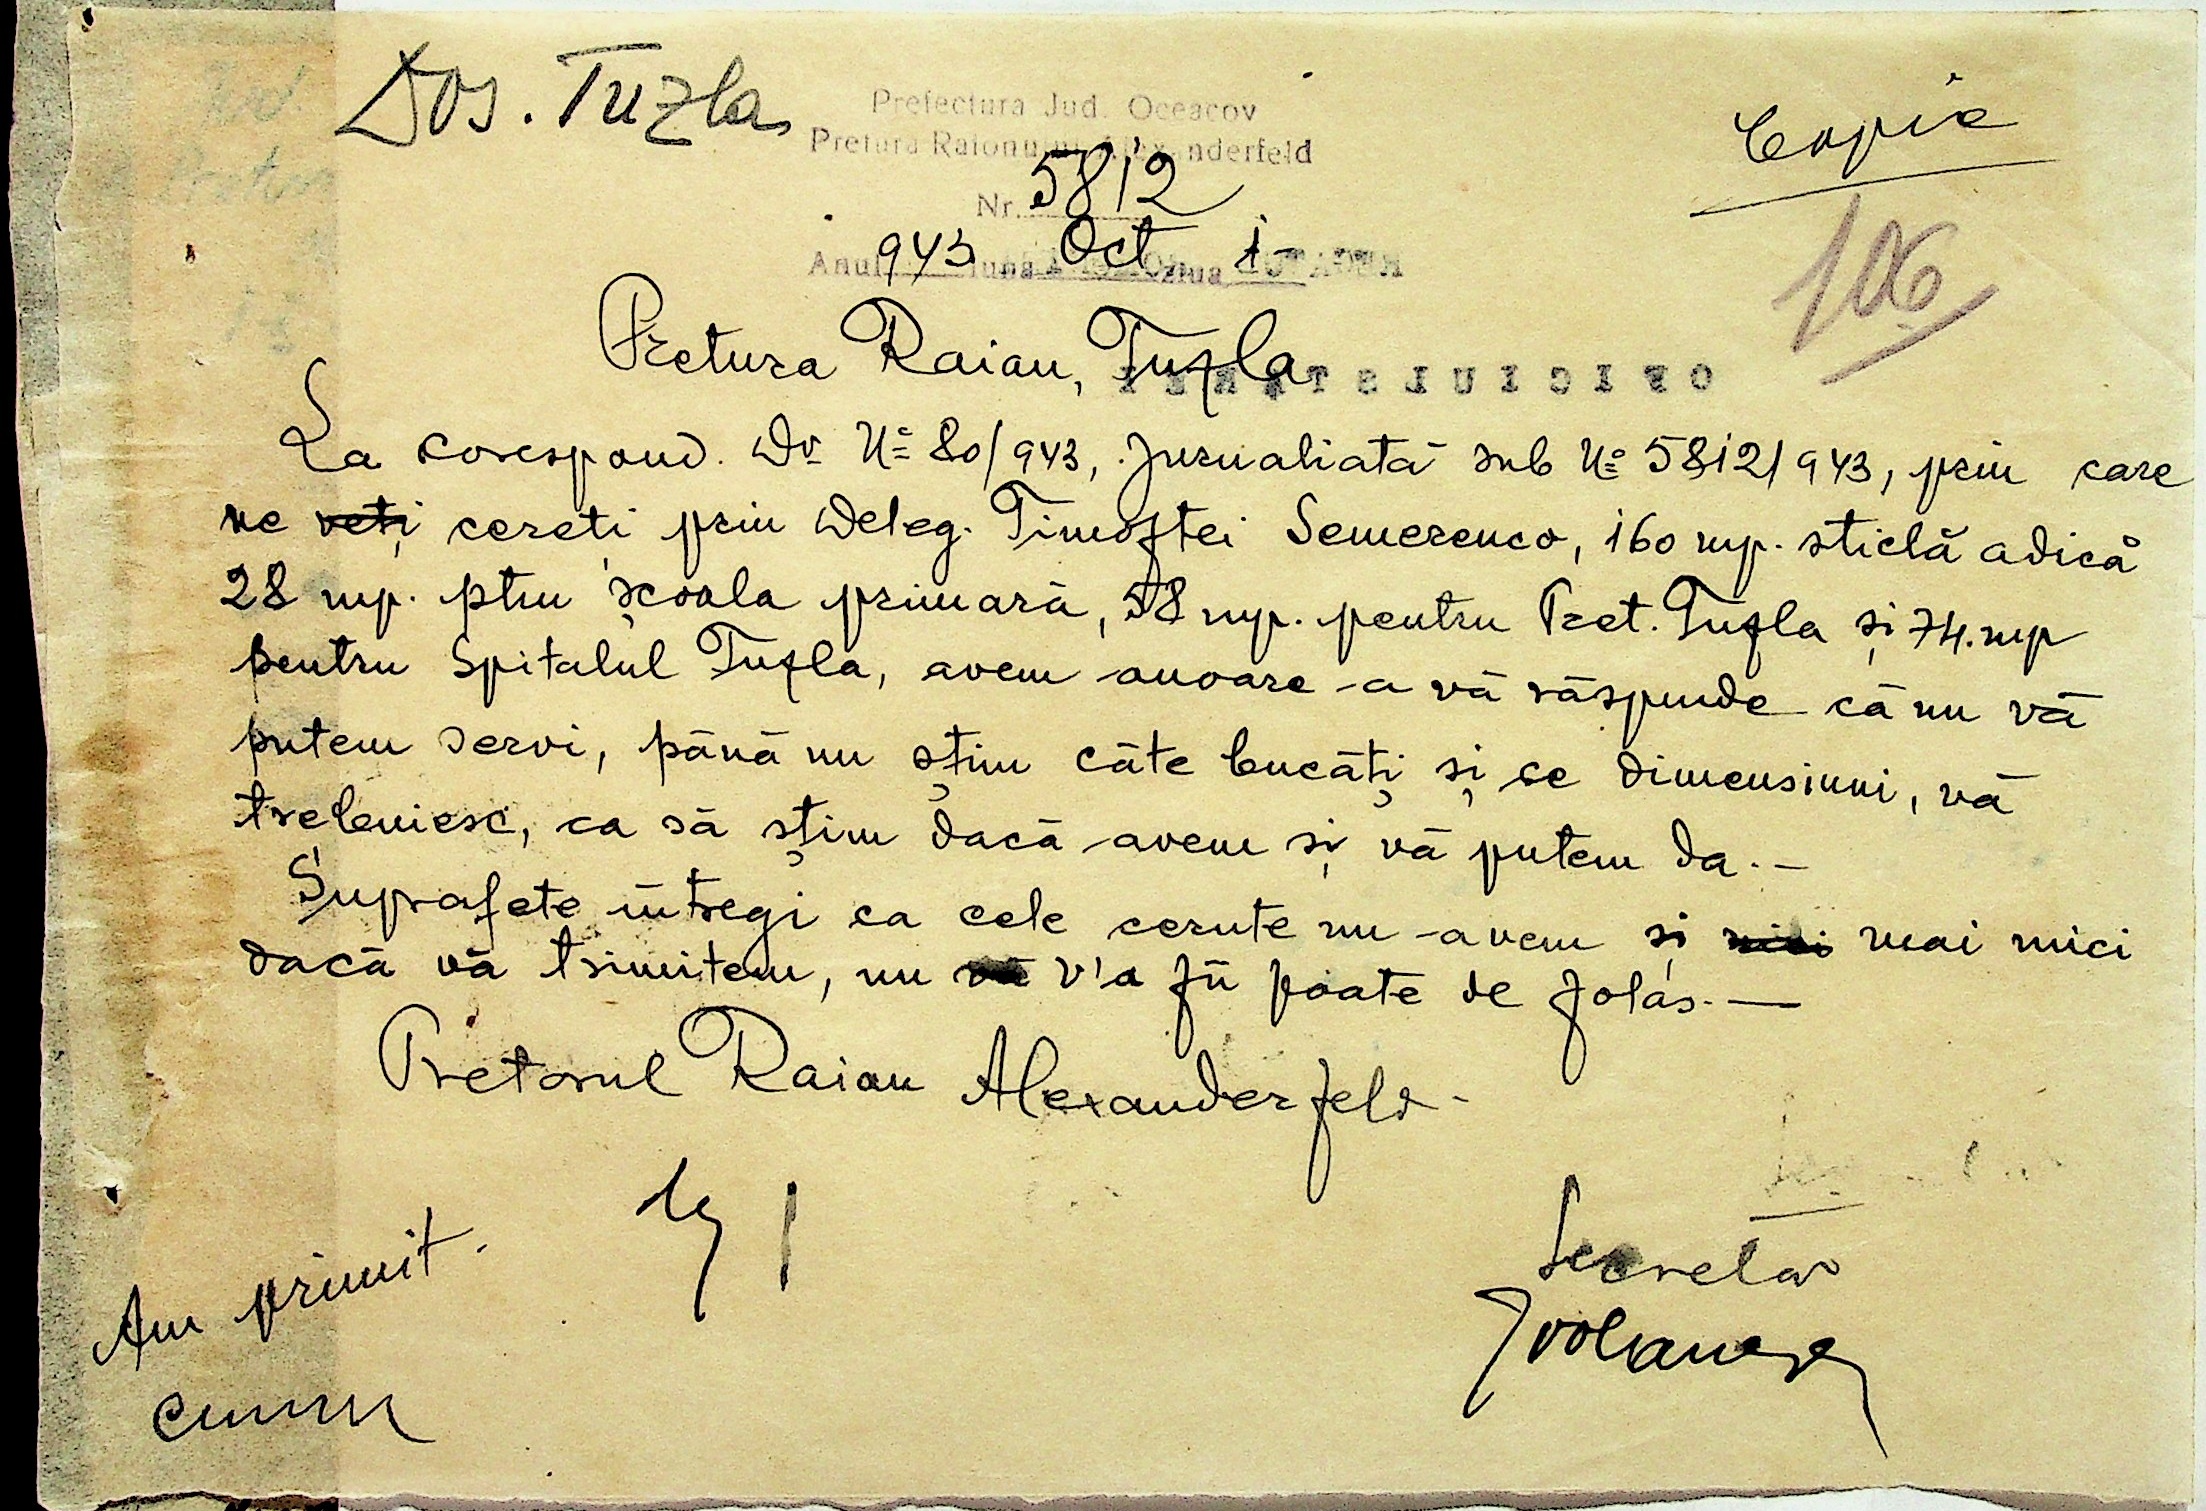 Dos. Tuzla
Prefectura Jud. Oceacov
Copie
Pretura Raionului Alexanderfeld
Nr. 5812
106
Anul 943 luna Oct ziua 1
Pretura Raion, Tuzla
OFICIUL
La corespond. Dv. No 80/943, jurnaliată sub No 5812/943, prin care
ne veți cereti prin Deleg. Timoftei Semerenco, 160 mp. sticlă adică
28 mp. ptru școala primară, 58 mp. pentru Pret. Tuzla și 74. mp
pentru Spitalul Tuzla, avem onoare a vă răspunde că nu vă
putem servi, până nu știm câte bucăți și ce dimensiuni, vă
trebuiesc, ca să știm dacă avem și vă putem da.-
Suprafete întregi ca cele cerute nu avem și nici mai mici
dacă vă trimitem, nu vă v'a fii poate de folos.—
Pretorul Raion Alexanderfeld-
Secretar
Am primit.